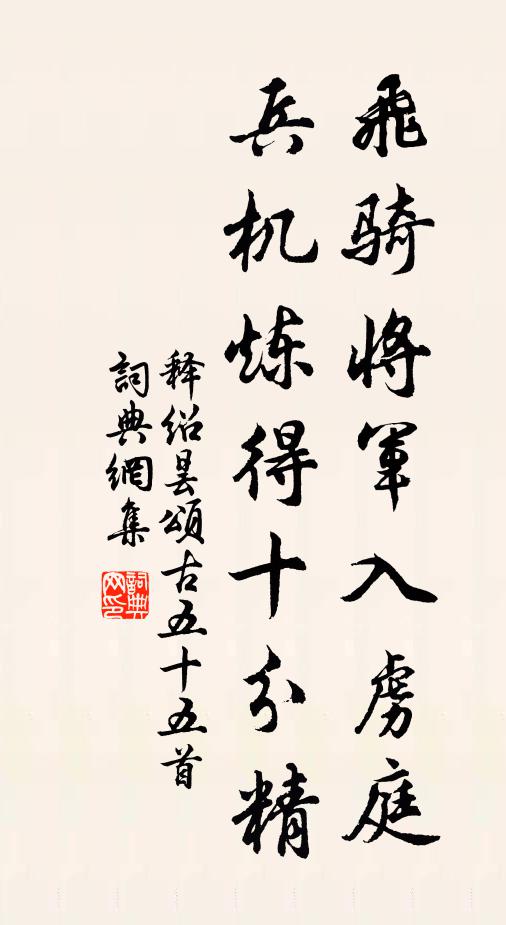 飛骑將軍入虜庭
兵机炼得十分精
释绍昙頌古五十五首
詞典網集
詞典網印